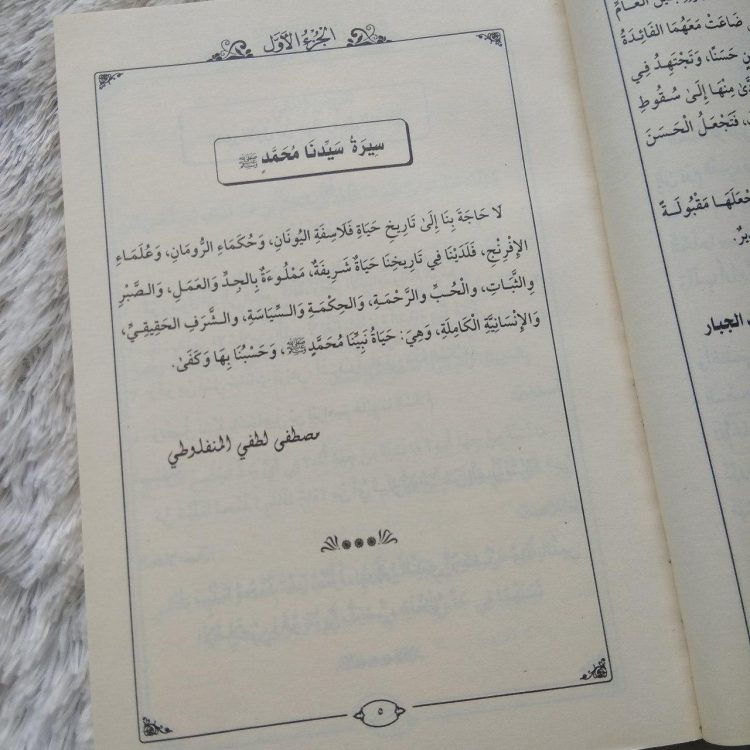 الجُزْءُ الأَوَّل
سِيرَةُ سَيِّدِنَا مُحَمَّدٍ ﷺ
لَا حَاجَةَ بِنَا إِلَىٰ تَارِيخِ حَيَاةِ فَلَاسِفَةِ اليُونَانِ، وَحُكَمَاءِ الرُّومَانِ، وَعُلَمَاءِ
الإِفْرِنْجِ، فَلَدَيْنَا فِي تَارِيخِنَا حَيَاةٌ شَرِيفَةٌ، مَمْلُوءَةٌ بِالجِدِّ وَالعَمَلِ، وَالصَّبْرِ
وَالثَّبَاتِ، وَالْحُبِّ وَالرَّحْمَةِ، وَالحِكْمَةِ وَالسِّيَاسَةِ، وَالشَّرَفِ الحَقِيقِيِّ،
وَالإِنْسَانِيَّةِ الكَامِلَةِ، وَهِيَ: حَيَاةُ نَبِيِّنَا مُحَمَّدٍ ﷺ، وَحَسْبُنَا بِهَا وَكَفَىٰ.
مصطفى لطفي المنفلوطي
٥
العَامُّ
ضَاعَتْ مَعَهُمَا الفَائِدَةُ
حَسَنًا، وَتَجْتَهِدُ فِي
مِنْهَا إِلَىٰ سُقُوطِ
فَتَجْعَلُ الْحَسَنَ
مَقْبُولَةً
الجبار